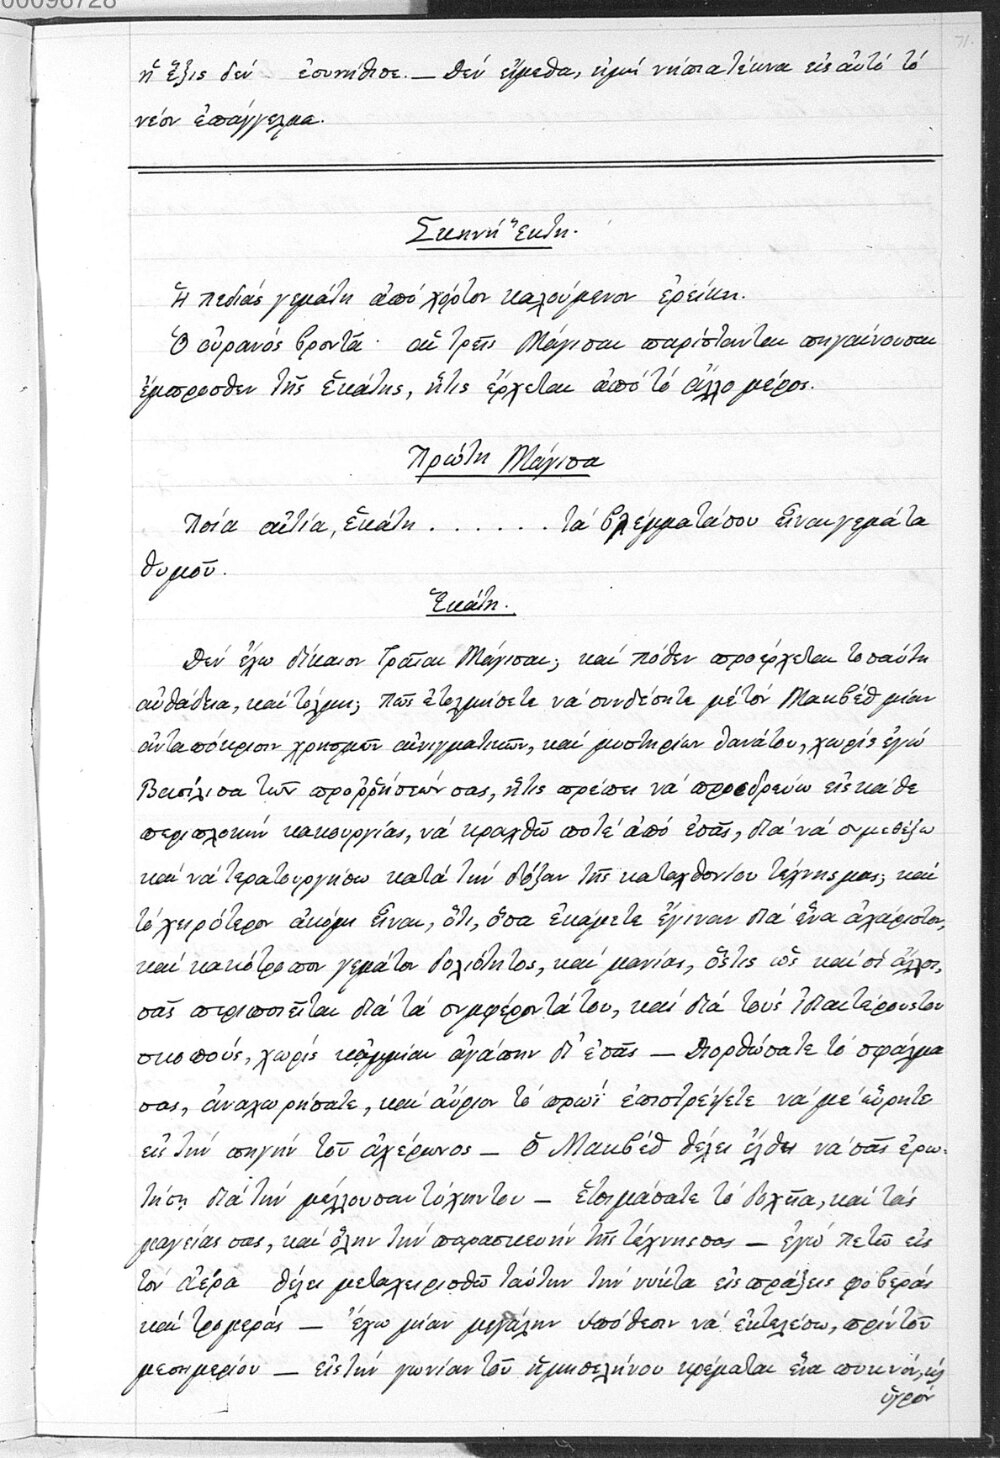 00096728
71.
ἡ ἕξις δέν ἐσυνήθισε. — Δέν εἴμεθα, εἰμή νήπια τέκνα εἰς αὐτό τό
νέον ἐπάγγελμα.
Σκηνή Ἕκτη.
Ἡ πεδιάς γεμάτη ἀπό χόρτον καλούμενον ἐρείκη.
Ὁ οὐρανός βροντᾶ· αἱ τρεῖς Μάγισαι παρίστανται πηγαίνουσαι
ἔμπροσθεν τῆς Ἑκάτης, ἥτις ἔρχεται ἀπό τό ἄλλο μέρος.
Πρώτη Μάγισα
Ποία αἰτία, Ἑκάτη . . . . . . τά βλέμματά σου εἶναι γεμάτα
θυμοῦ.
Ἑκάτη.
Δέν ἔχω δίκαιον Γραῖαι Μάγισαι; καί πόθεν προέρχεται τοσαύτη
αὐθάδεια, καί τόλμη; Πῶς ἐτολμήσετε νά συνδέσητε μέ τόν Μακβέθ μίαν
ἀνταπόκρισιν χρησμῶν αἰνιγματικῶν, καί μυστηρίων θανάτου, χωρίς ἐγώ
Βασίλισα τῶν προῤῥήσεών σας, ἥτις πρέπει νά προεδρεύω εἰς κάθε
περιπλοκήν κακουργίας, νά κραχθῶ ποτέ ἀπό ἐσᾶς, διά νά συμεθέξω
καί νά τερατουργήσω κατά τήν δόξαν τῆς καταχθονίου τέχνης μας; καί
τό χειρότερον ἀκόμη εἶναι, ὅτι, ὅσα ἐκάμετε ἔγιναν διά ἕνα ἀχάριστον,
καί κακότροπον γεμάτον δολιότητος, καί μανίας, ὅστις ὡς καί οἱ ἄλλοι,
σᾶς περιποιεῖται διά τά συμφέροντά του, καί διά τούς ἰδιαιτέρους του
σκοπούς, χωρίς καμμίαν ἀγάπην δι' ἐσᾶς — Διορθώσατε τό σφάλμα
σας, ἀναχωρήσατε, καί αὔριον τό πρωί ἐπιστρέψετε νά μέ εὕρητε
εἰς τήν πηγήν τοῦ ἀχέρωνος — Ὁ Μακβέθ θέλει ἔλθει νά σᾶς ἐρω-
τήσῃ διά τήν μέλλουσαν τύχην του — ἑτοιμάσατε τά δοχεῖα, καί τάς
μαγείας σας, καί ὅλην τήν παρασκευήν τῆς τέχνης σας — ἐγώ πετῶ εἰς
τόν ἀέρα θέλει μεταχειρισθῶ ταύτην τήν νύκτα εἰς πράξεις φοβεράς
καί τρομεράς — ἔχω μίαν μεγάλην ὑπόθεσιν νά ἐκτελέσω, πρίν τοῦ
μεσημερίου — εἰς τήν γωνίαν τοῦ ἡμησελήνου κρέμαται ἕνα πυκνόν, κ
ὑγρόν